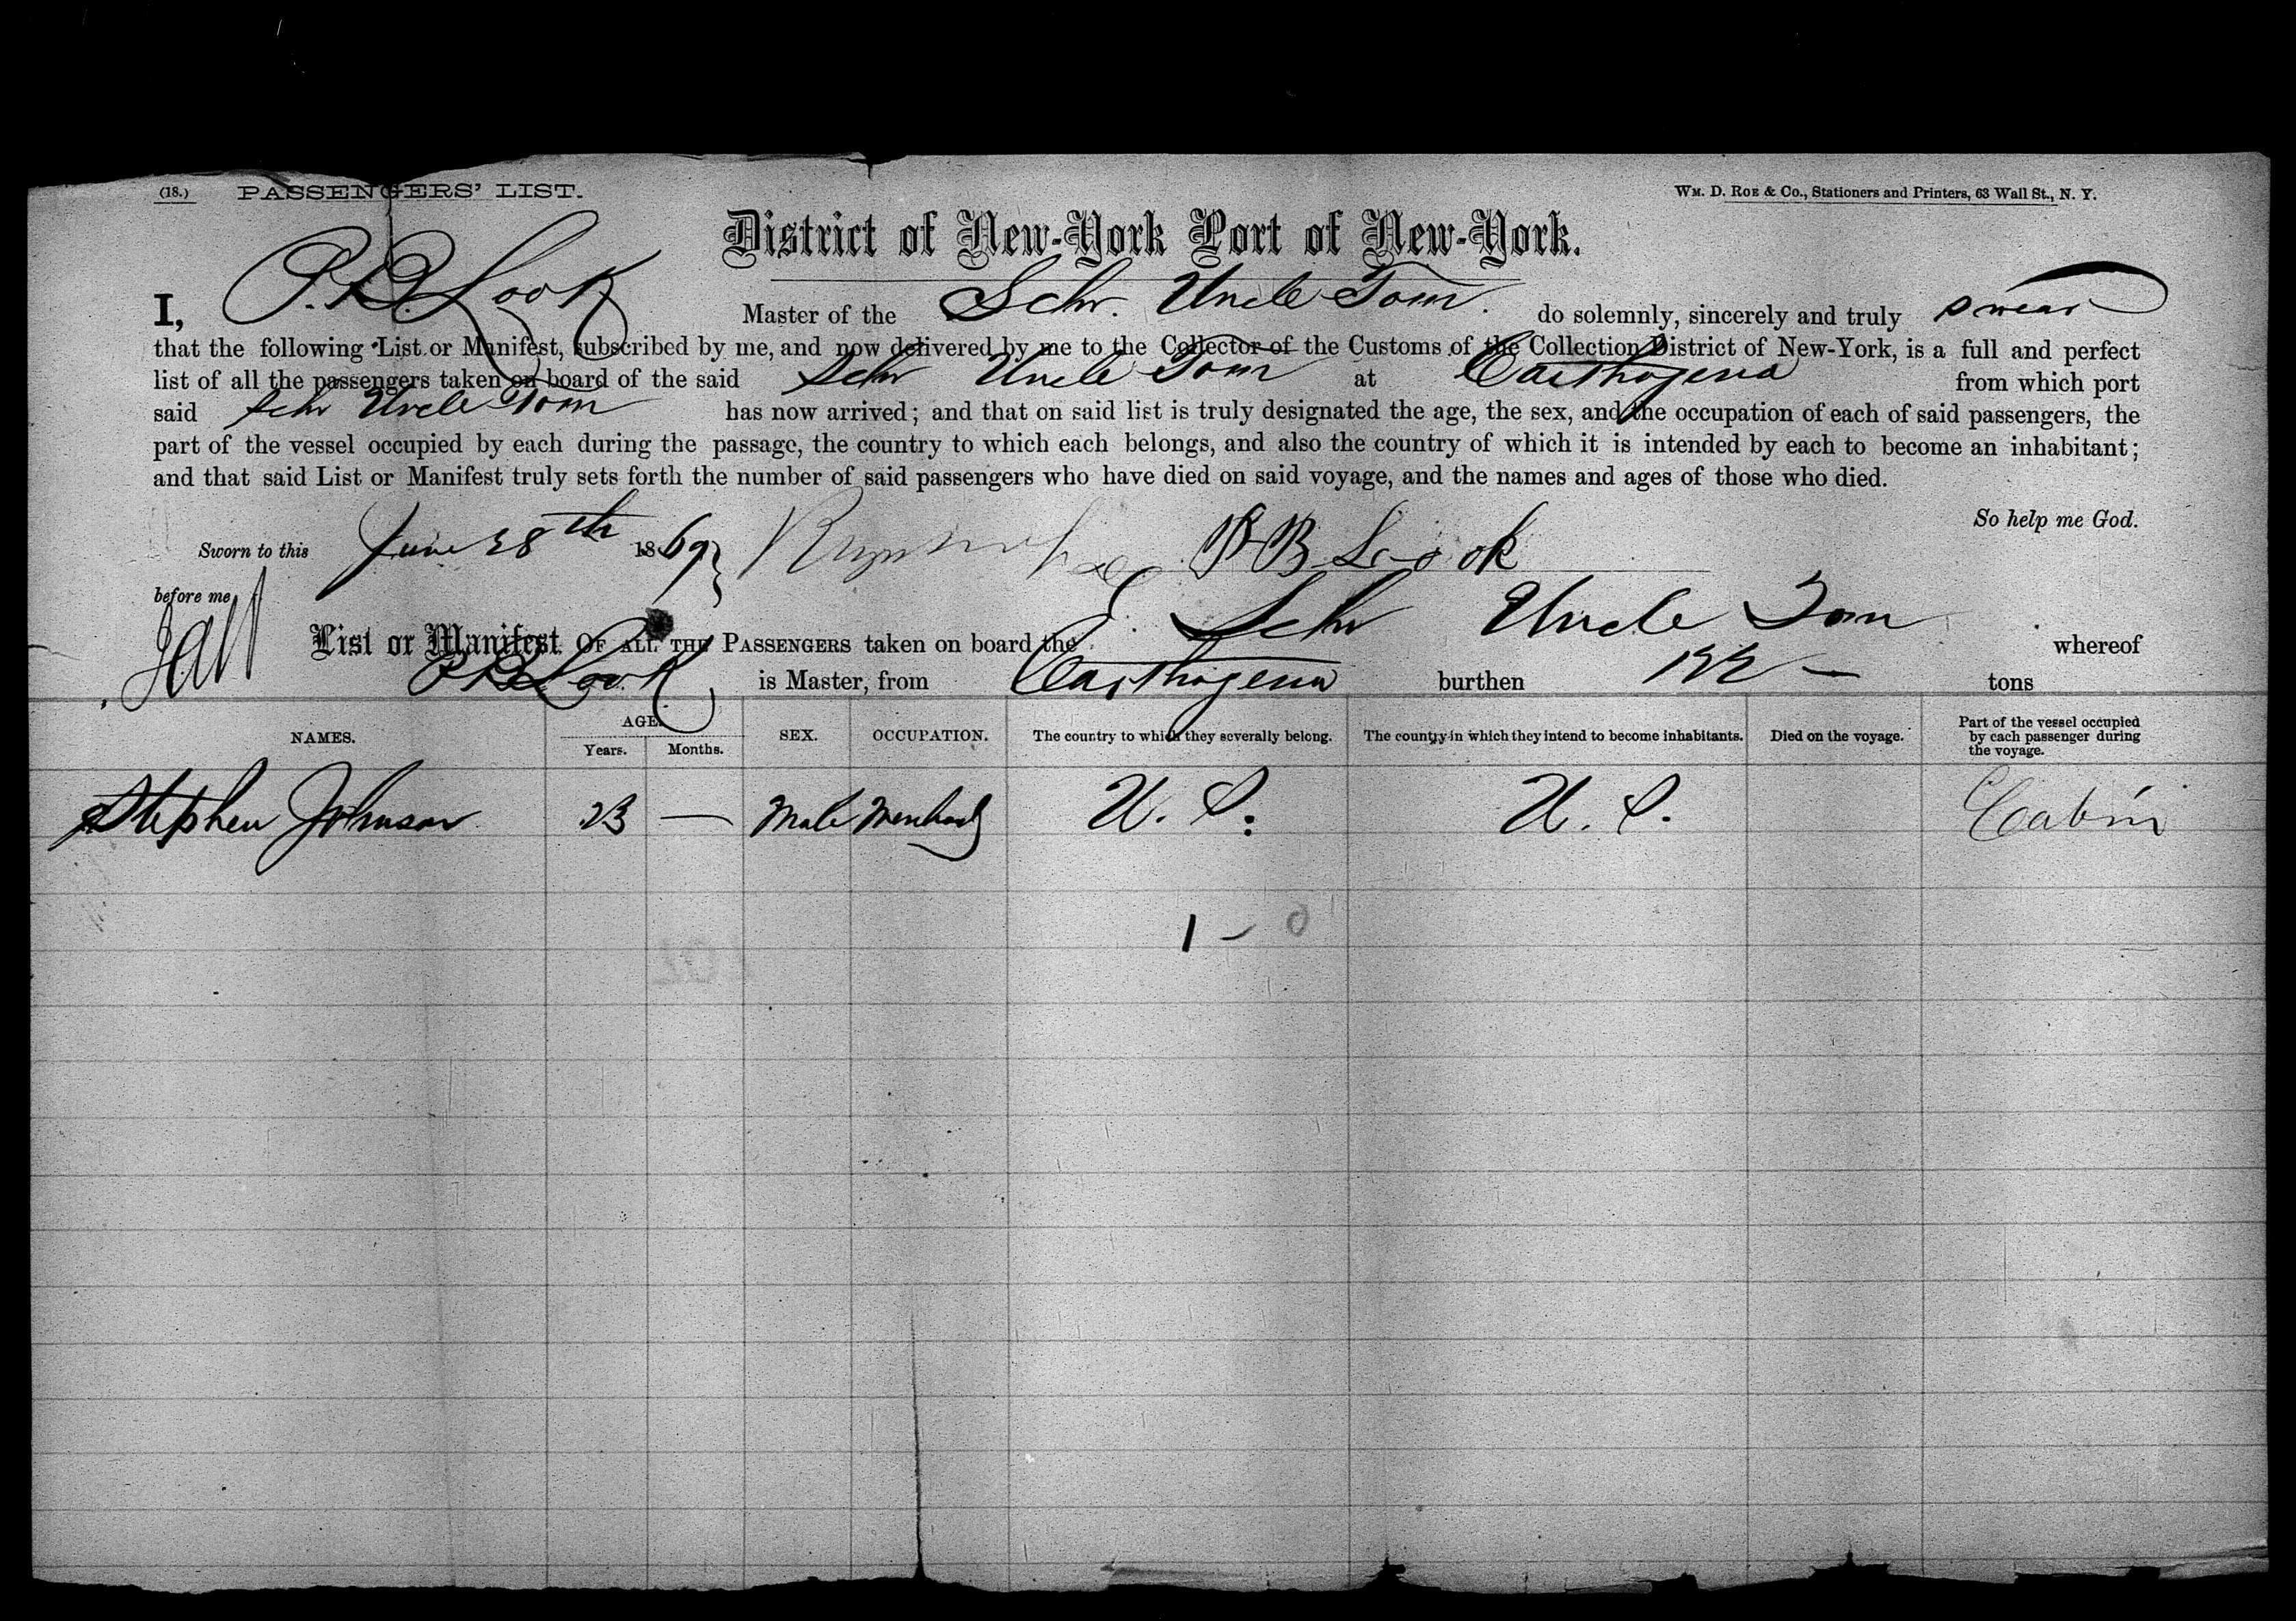 (18.) PASSENGERS' LIST. WM. D. ROE & CO., Stationers and Printers, 63 Wall St., N. Y.
District of New-York Port of New-York.
I, P. B. Look Master of the Schr. Uncle Tom. do solemnly, sincerely and truly swear
that the following List or Manifest, subscribed by me, and now delivered by me to the Collector of the Customs of the Collection District of New-York, is a full and perfect
list of all the passengers taken on board of the said Schr Uncle Tom at Carthagena from which port
said Schr Uncle Tom has now arrived; and that on said list is truly designated the age, the sex, and the occupation of each of said passengers, the
part of the vessel occupied by each during the passage, the country to which each belongs, and also the country of which it is intended by each to become an inhabitant;
and that said List or Manifest truly sets forth the number of said passengers who have died on said voyage, and the names and ages of those who died.
So help me God.
Sworn to this June 28th 1869 P B Look
before me
List or Manifest OF ALL THE PASSENGERS taken on board the Schr Uncle Tom whereof
P B Look is Master, from Carthagena burthen 122 — tons
NAMES. AGE. SEX. OCCUPATION. The country to which they severally belong. The country in which they intend to become inhabitants. Died on the voyage. Part of the vessel occupied by each passenger during the voyage.
Years. Months.
Stephen Johnson 23 — Male Merchant U. S. U. S. Cabin
1 - 0